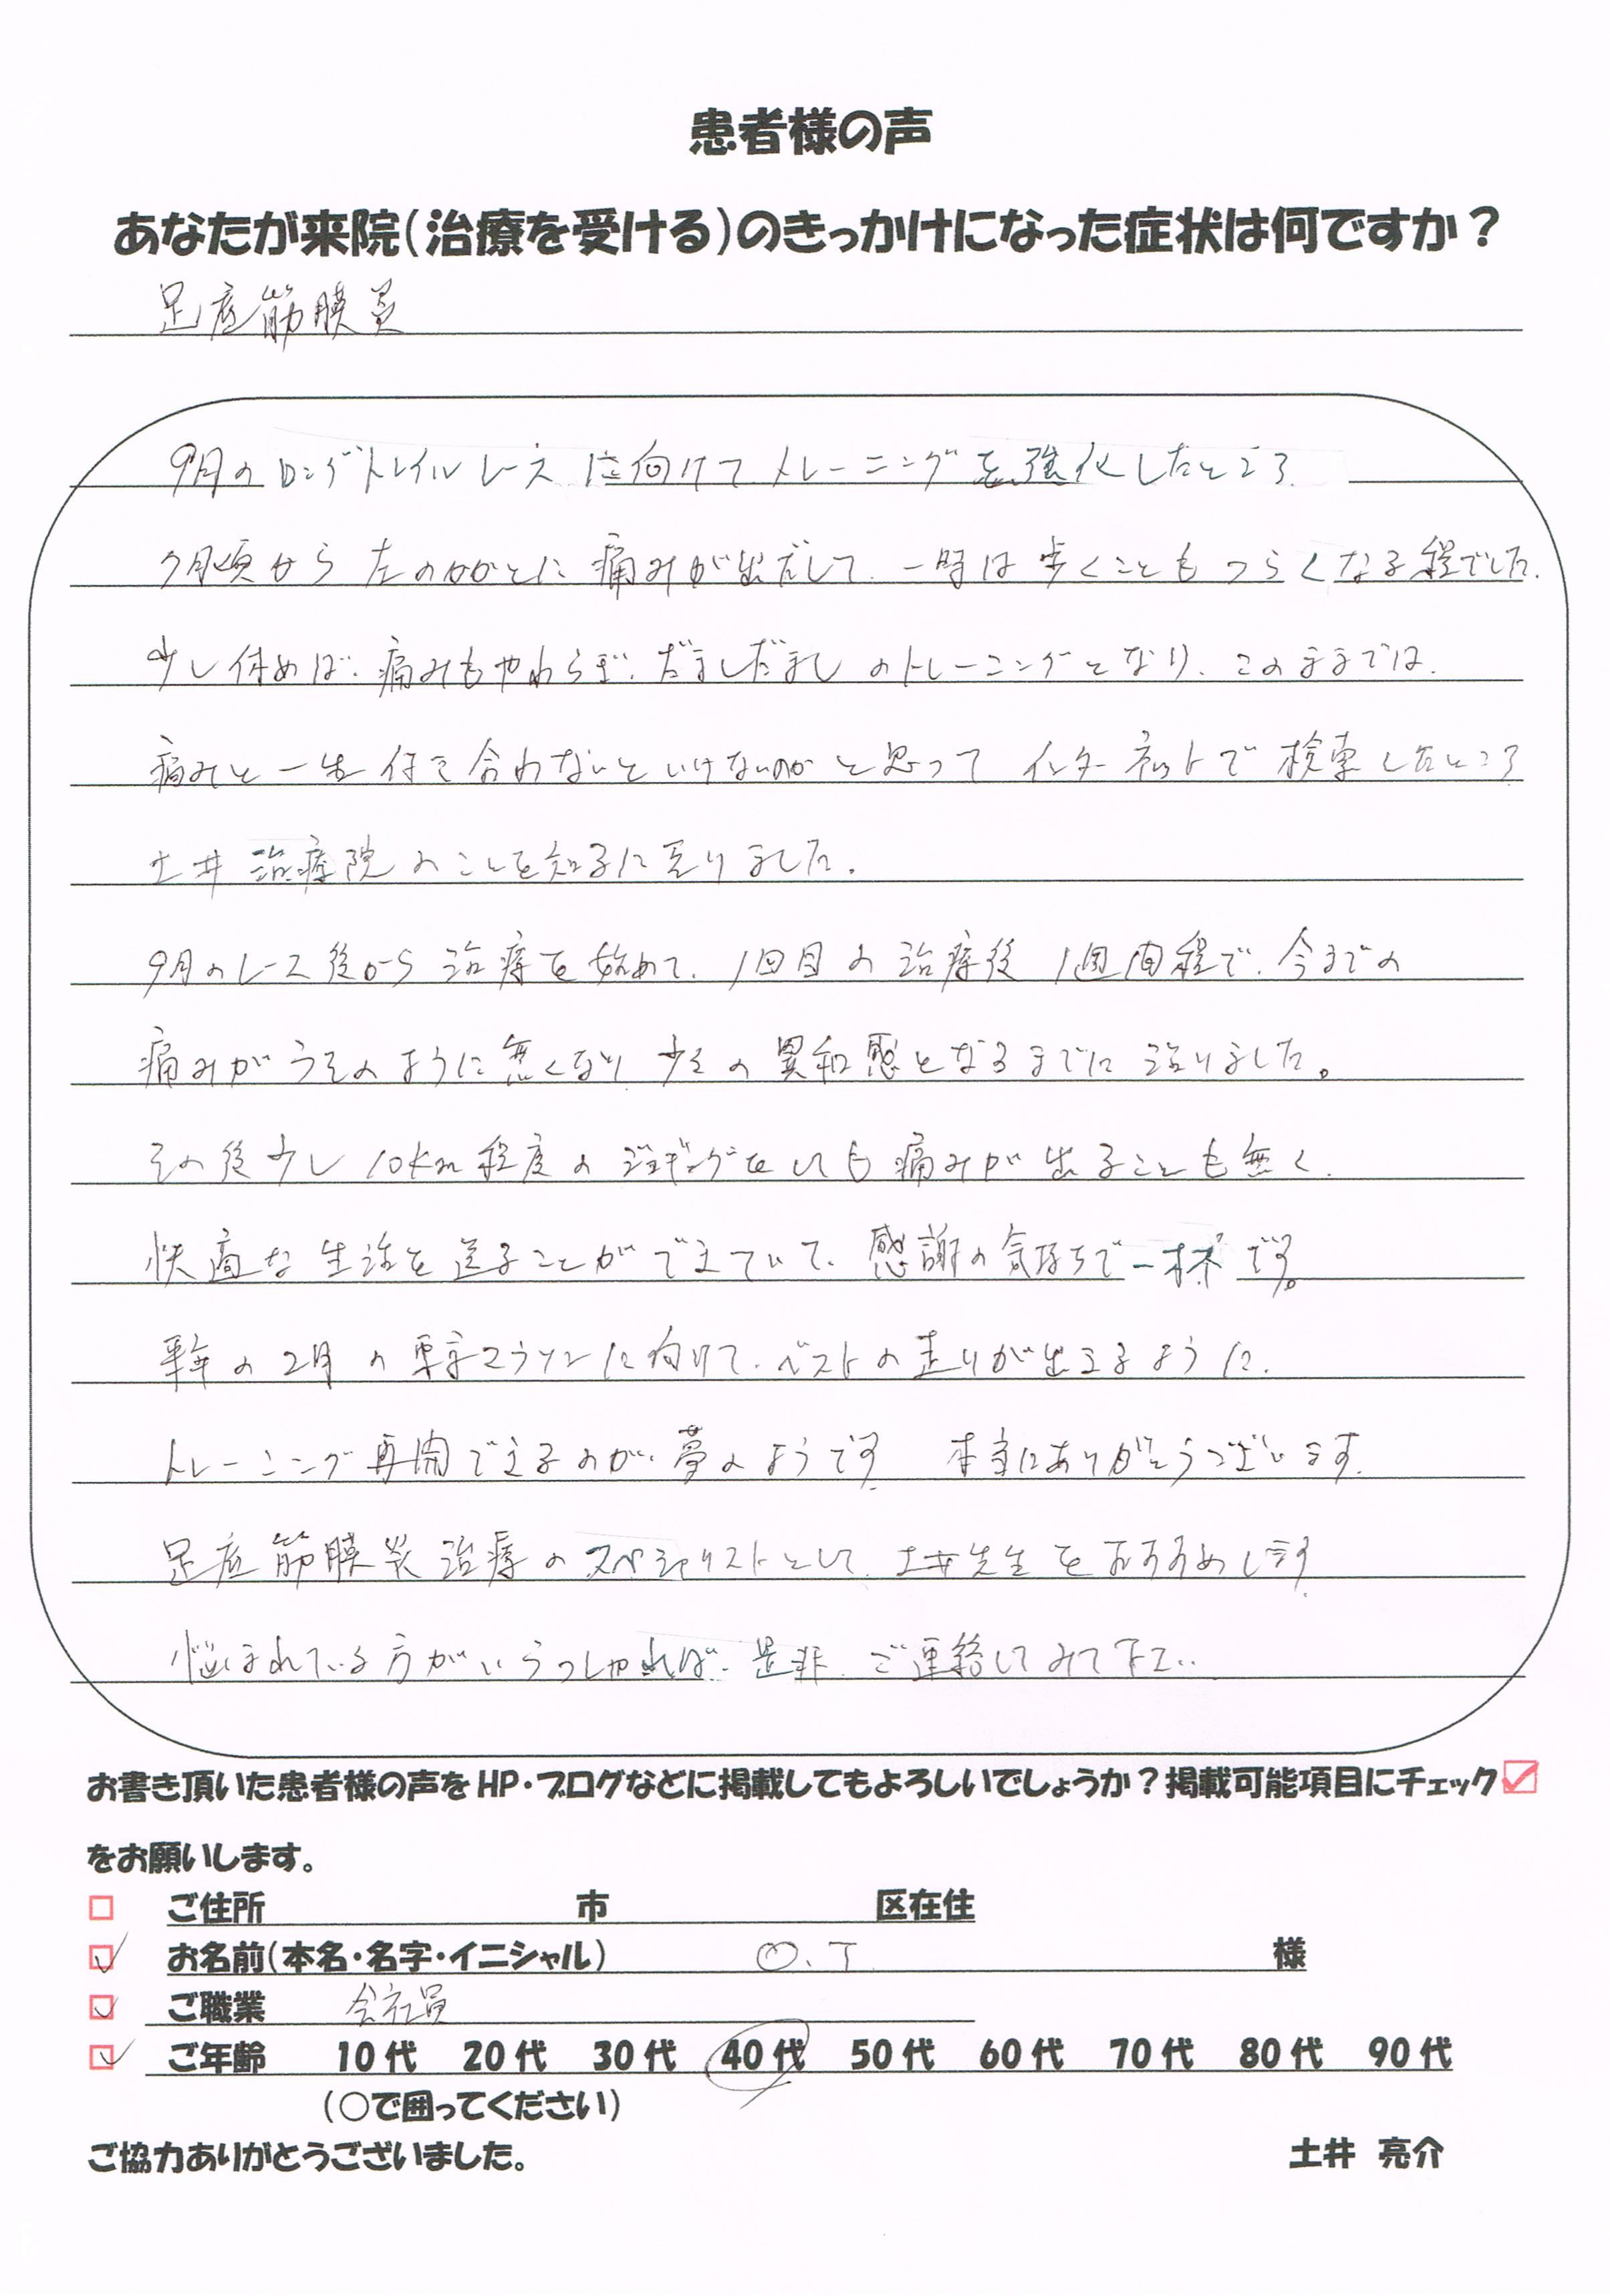 患者様の声
あなたが来院(治療を受ける)のきっかけになった症状は何ですか?
足底筋膜炎
9月のロングトレイルレースに向けてトレーニングを強化したところ、
7月頃から左のかかとに痛みが出だして、一時は歩くこともつらくなる程でした。
少し休めば、痛みもやわらぎ、だましだましのトレーニングとなり、このままでは、
痛みと一生付き合わないといけないのかと思ってインターネットで検索したところ
土井治療院のことを知るに至りました。
9月のレース後から治療を始めて、1回目の治療後1週間程で、今までの
痛みがうそのように無くなり、少々の異和感となるまでに治りました。
その後少し10km程度のジョギングをしても痛みが出ることも無く、
快適な生活を送ることができていて、感謝の気持ちで一杯です。
の2月の東京マラソンに向けて、ベストの走りが出来るように、
トレーニング再開できるのが、夢のようです。本当にありがとうございます。
足底筋膜炎治療のスペシャリストとして、土井先生をおすすめします。
悩まれている方がいらっしゃれば、是非、ご連絡してみて下さい。
お書き頂いた患者様の声をHP・ブログなどに掲載してもよろしいでしょうか?掲載可能項目にチェック☑
をお願いします。
□ ご住所 市 区在住
☑ お名前(本名・名字・イニシャル) O.T 様
☑ ご職業 会社員
☑ ご年齢 10代 20代 30代 40代 50代 60代 70代 80代 90代
(○で囲ってください)
ご協力ありがとうございました。 土井 亮介